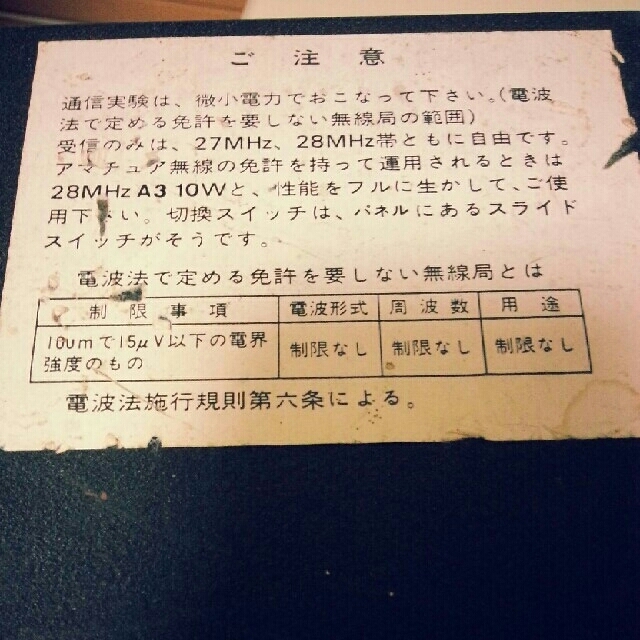 ご注意
通信実験は、微小電力でおこなって下さい。(電波
法で定める免許を要しない無線局の範囲)
受信のみは、27MHz、28MHz帯ともに自由です。
アマチュア無線の免許を持って運用されるときは
28MHz A3 10Wと、性能をフルに生かして、ご使
用下さい。切換スイッチは、パネルにあるスライド
スイッチがそうです。
電波法で定める免許を要しない無線局とは
制限事項 電波形式 周波数 用途
100mで15μV以下の電界 制限なし 制限なし 制限なし
強度のもの
電波法施行規則第六条による。